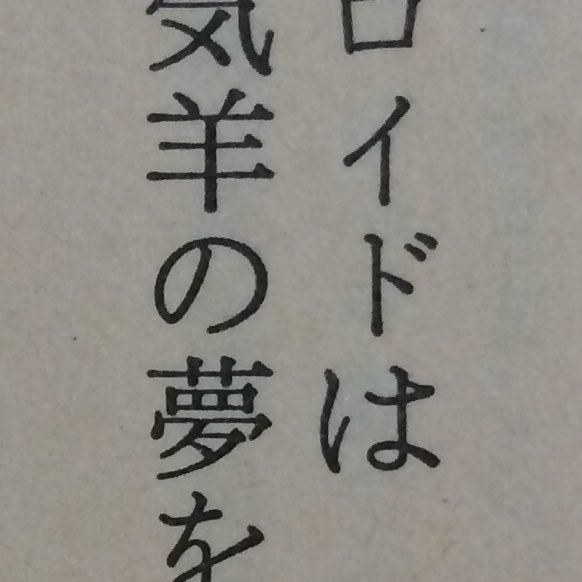 ロイドは
気羊の夢を